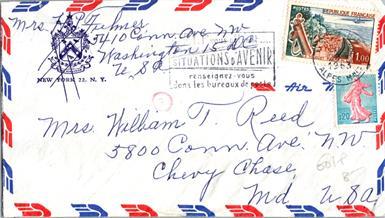 Mrs. H. P. Fulmer
5410 Conn. Ave NW
Washington 15 DC
U S A
NEW YORK 22. N. Y.
SITUATIONS D'AVENIR
renseignez-vous
dans les bureaux de poste
POSTES
REPUBLIQUE FRANCAISE
1,00
1963
ALPES MAR
0,20
Air Mail
Mrs. William T. Reed
5800 Conn. Ave. NW
Chevy Chase,
Md USA